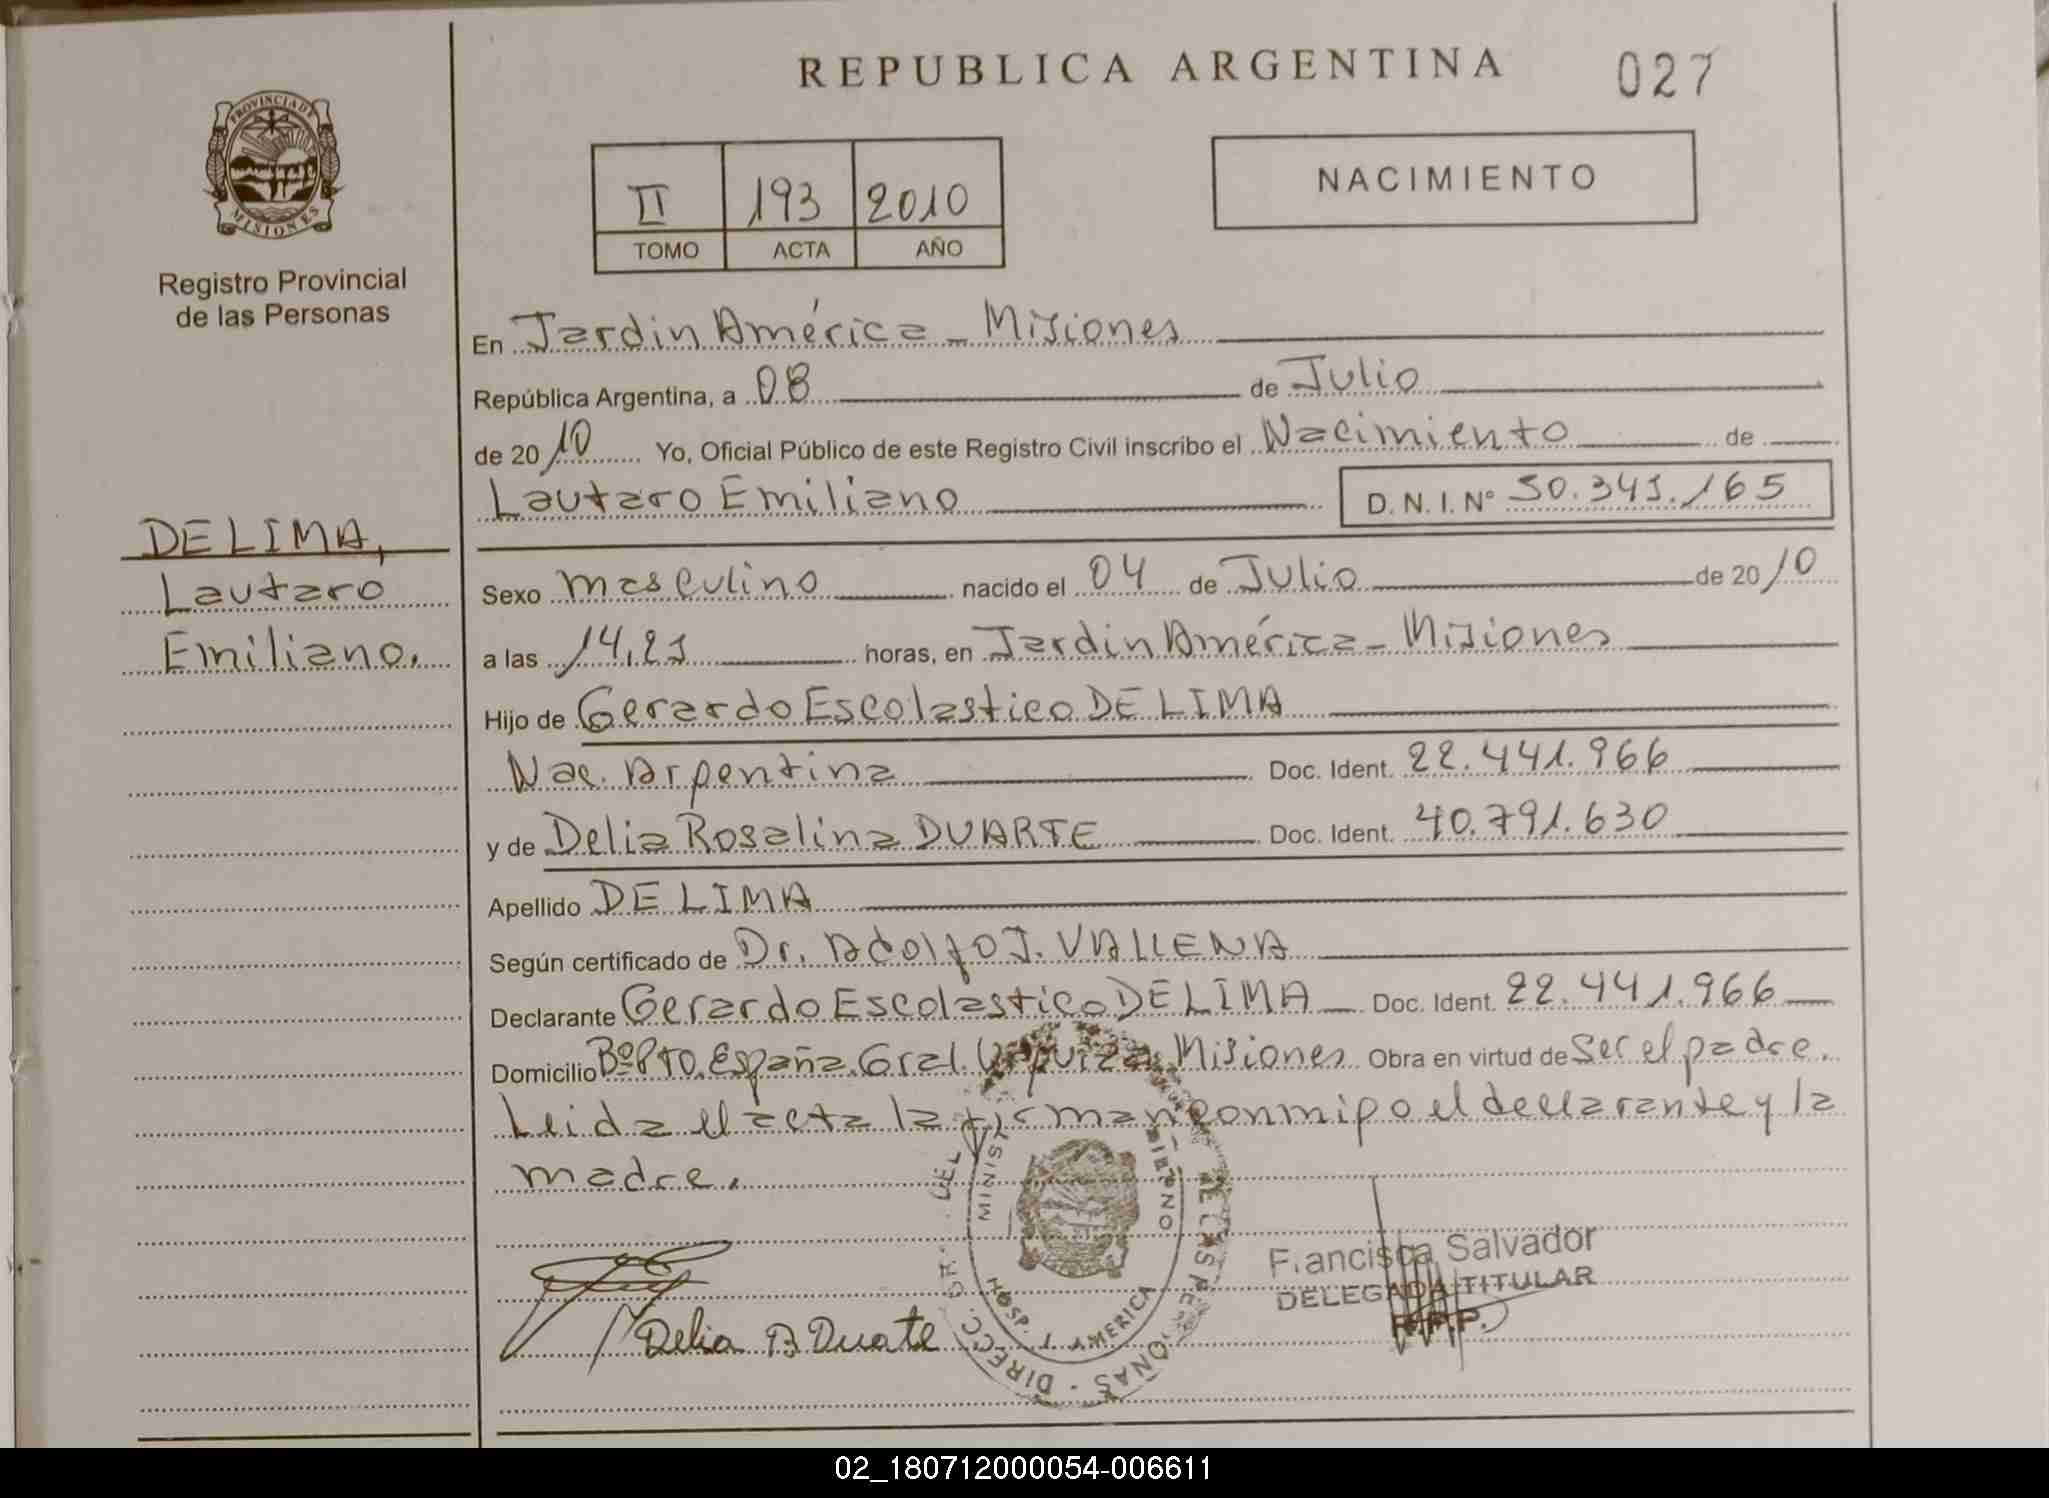 REPUBLICA ARGENTINA
027
PROVINCIA DE
MISIONES
Registro Provincial
de las Personas
II 193 2010
TOMO ACTA AÑO
NACIMIENTO
En Jardin América - Misiones
República Argentina, a 08 de Julio
de 2010 Yo, Oficial Público de este Registro Civil inscribo el Nacimiento de
Lautaro Emiliano D. N. I. Nº 50.341.165
DE LIMA,
Lautaro
Emiliano.
Sexo masculino nacido el 04 de Julio de 2010
a las 14,21 horas, en Jardin América - Misiones
Hijo de Gerardo Escolastico DE LIMA
Nac. Argentina Doc. Ident. 22.441.966
y de Delia Rosalina DUARTE Doc. Ident. 40.791.630
Apellido DE LIMA
Según certificado de Dr. Adolfo J. VALLENA
Declarante Gerardo Escolastico DE LIMA Doc. Ident. 22.441.966
Domicilio Bº Pto. España. Gral. Urquiza Misiones Obra en virtud de ser el padre.
Leida el acta la firman conmigo el declarante y la
madre.
Francisca Salvador
DELEGADA TITULAR
R.P.P.
Delia R Duarte
HOSP. J. AMERICA
02_180712000054-006611